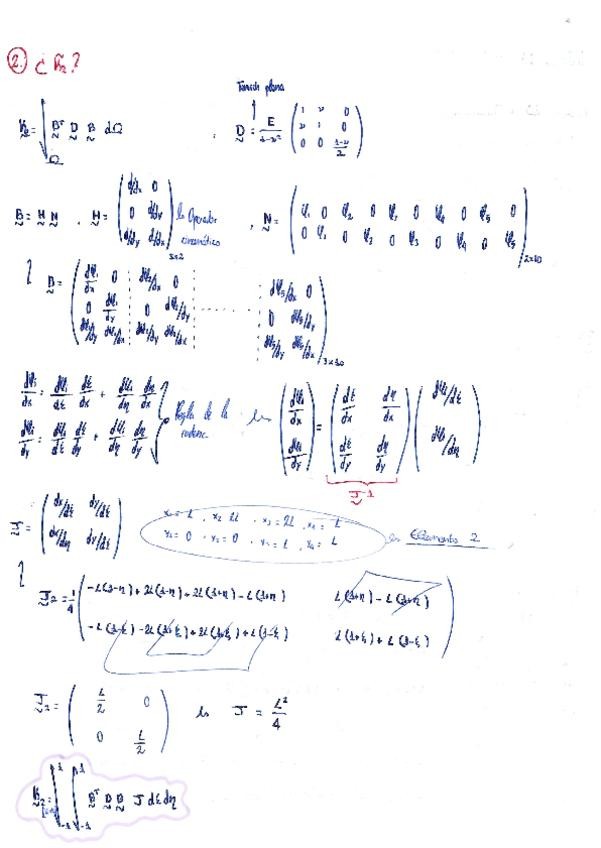 2. ¿ K₂?
Tensión plana
K₂ = ∫_Ω Bᵀ D B dΩ , D = E/(1-ν²) (1 ν 0; ν 1 0; 0 0 (1-ν)/2)
B = H N , H = (d/dx 0; 0 d/dy; d/dy d/dx)₃ₓ₂ Operador cinemático , N = (φ₁ 0 φ₂ 0 φ₃ 0 φ₄ 0 φ₅ 0; 0 φ₁ 0 φ₂ 0 φ₃ 0 φ₄ 0 φ₅)₂ₓ₁₀
B = (dφ₁/dx 0 dφ₂/dx 0 ........ dφ₅/dx 0; 0 dφ₁/dy 0 dφ₂/dy ........ 0 dφ₅/dy; dφ₁/dy dφ₁/dx dφ₂/dy dφ₂/dx ........ dφ₅/dy dφ₅/dx)₃ₓ₁₀
dφᵢ/dx = dφᵢ/dξ dξ/dx + dφᵢ/dη dη/dx
dφᵢ/dy = dφᵢ/dξ dξ/dy + dφᵢ/dη dη/dy
Regla de la cadena
(dφᵢ/dx; dφᵢ/dy) = (dξ/dx dη/dx; dξ/dy dη/dy) (dφᵢ/dξ; dφᵢ/dη)
J⁻¹
J = (dx/dξ dy/dξ; dx/dη dy/dη)
x₁ = L , x₂ = 2L , x₃ = 2L , x₄ = L
y₁ = 0 , y₂ = 0 , y₃ = L , y₄ = L
Elemento 2
J₂ = 1/4 (-L(1-η) + 2L(1-η) + 2L(1+η) - L(1+η) L(1+η) - L(1+η); -L(1-ξ) - 2L(1+ξ) + 2L(1+ξ) + L(1-ξ) L(1+ξ) + L(1-ξ))
J₂ = (L/2 0; 0 L/2) J = L²/4
K₂ = ∫₋₁¹ ∫₋₁¹ Bᵀ D B J dξ dη